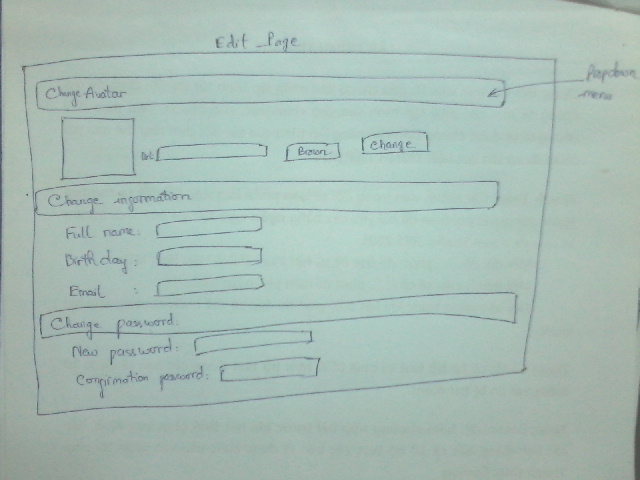 Edit Page
Change Avatar
Dropdown
menu
Change
Change information
Full name:
Birthday:
Email :
Change password:
New password:
Confirmation password: